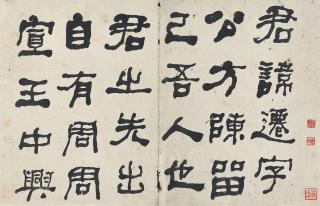 君諱遷字
公方陳留
己吾人也
君之先出
自有周周
宣王中興